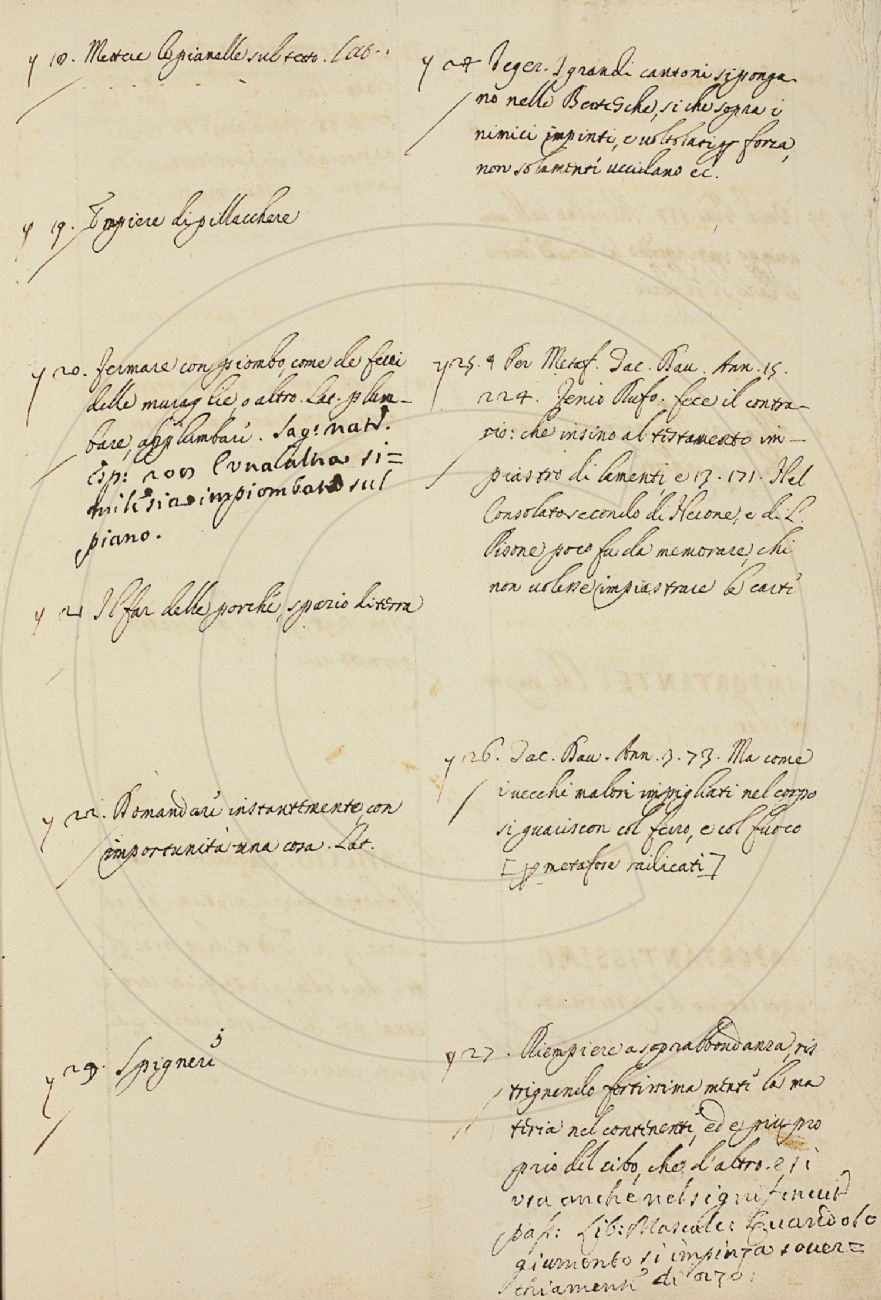 18. Mettere le pianelle sul tetto. Lat.
19. Empiere di pillacchere
20. fermare con piombo, come de ferri
delle muraglie, o altro. Lat. plum-
bare, applumbare. Sag: nat:
esp: 200 l'una l'altra si=
mil sia impiombata sul
piano.
21 Il far delle porche, spazio di terra
22. Domandare instantemente, con
importunità una cosa. Lat.
23. Spignere
24 Veget. I grandi cantoni si ponga-
no nelle Bertesche, si che sopra i
nimici impinti, e voltolati per forza,
non solamente uccidano ec.
25. Per Metaf. Tac. Dav. Ann. 15.
224. Fenio Rufo fece il contra-
rio: che insino al testamento im-
piastro di lamenti, e 13. 171. Nel
Consolato secondo di Nerone, e di L.
Pisone poco fu da memorare, chi
non volesse impiastrare le carte
26. Tac. Dav. Ann. 3. 73. Ma come
i vecchi malori impigliati nel corpo
si guariscon col ferro, e col fuoco
[per metafore radicati]
27. Riempiere a soprabbondanza, ris
trignendo fortissimamente la ma
teria nel continente, ed è più pro
prio del cibo, che d'altro. e si
usa anche nel signif: neut:
pass: Lib: Mascalc: Quando lo
giumento si impinza sover=
chiamente di orzo: